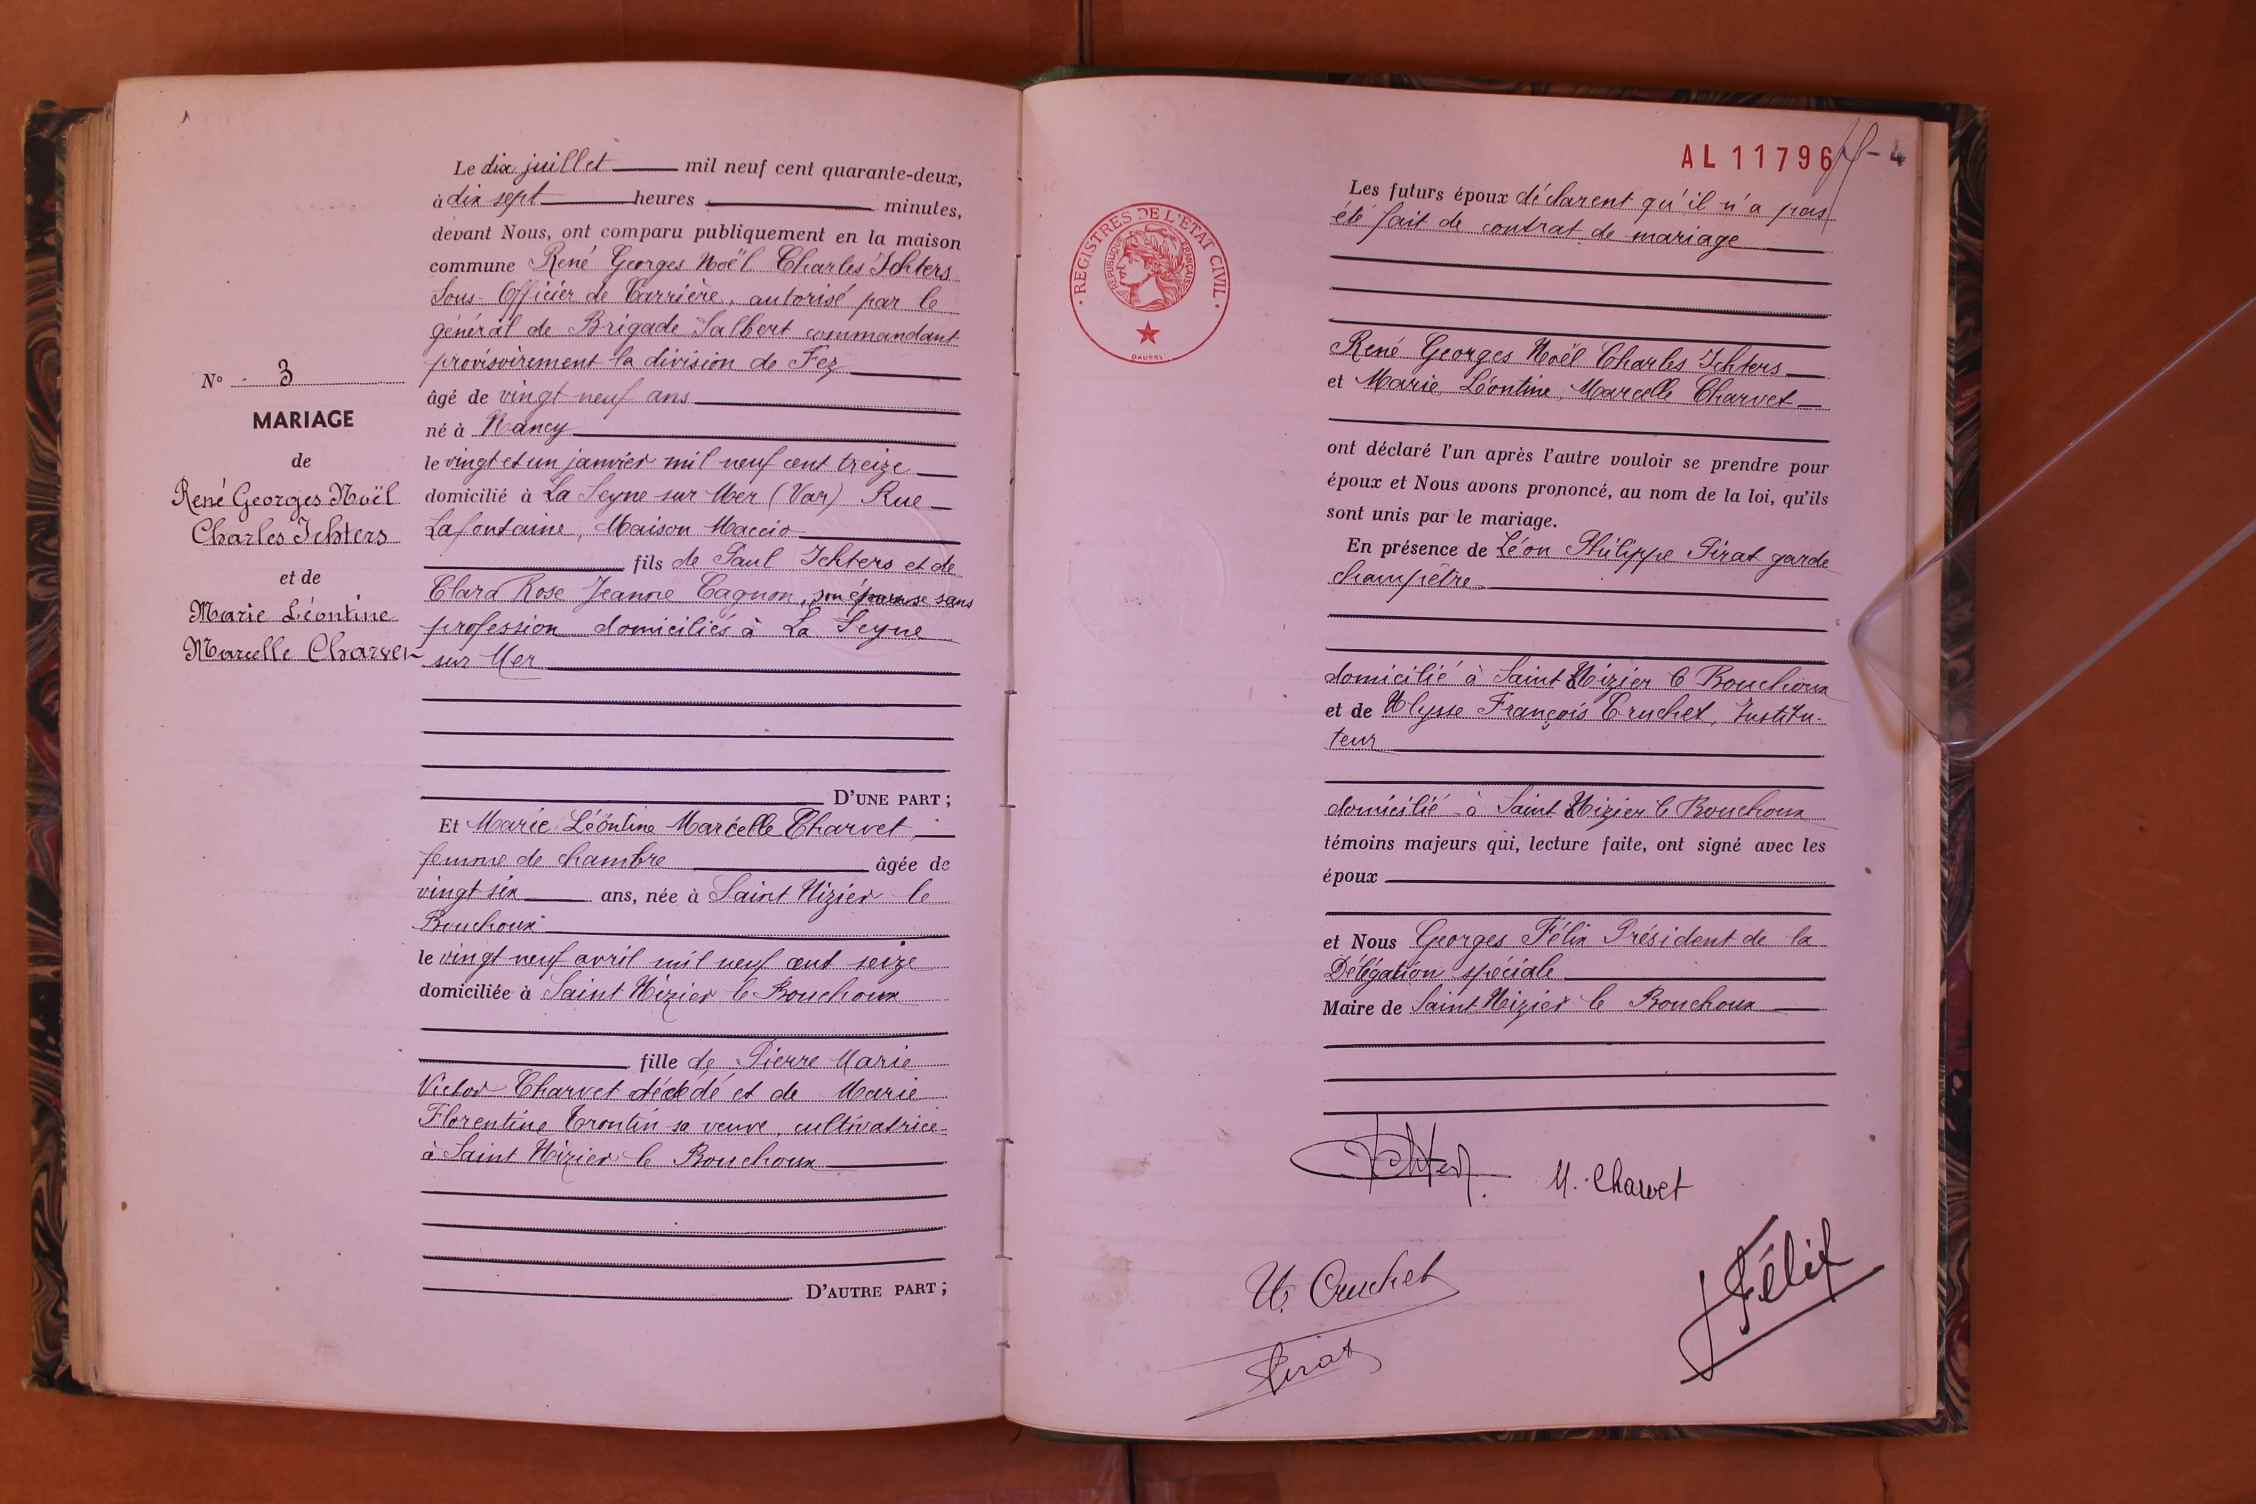 N° 3
MARIAGE
de
René Georges Noël
Charles Ichters
et de
Marie Léontine
Marcelle Charvet
Le dix juillet mil neuf cent quarante-deux,
à dix sept heures minutes,
devant Nous, ont comparu publiquement en la maison
commune René Georges Noël Charles Ichters
Sous-Officier de Carrière, autorisé par le
général de Brigade Salbert commandant
provisoirement la division de Fez
âgé de vingt neuf ans
né à Nancy
le vingt et un janvier mil neuf cent treize
domicilié à La Seyne sur Mer (Var) Rue
Lafontaine, Maison Maccio
fils de Paul Ichters et de
Clara Rose Jeanne Cagnon, son épouse sans
profession domiciliés à La Seyne
sur Mer
D'UNE PART ;
Et Marie Léontine Marcelle Charvet,
femme de chambre âgée de
vingt six ans, née à Saint Nizier le
Bouchoux
le vingt neuf avril mil neuf cent seize
domiciliée à Saint Nizier le Bouchoux
fille de Pierre Marie
Victor Charvet décédé et de Marie
Florentine Trontin sa veuve, cultivatrice
à Saint Nizier le Bouchoux
D'AUTRE PART ;
AL 11796
REGISTRES DE L'ETAT CIVIL
REPUBLIQUE FRANÇAISE
Les futurs époux déclarent qu'il n'a pas
été fait de contrat de mariage
René Georges Noël Charles Ichters
et Marie Léontine Marcelle Charvet
ont déclaré l'un après l'autre vouloir se prendre pour
époux et Nous avons prononcé, au nom de la loi, qu'ils
sont unis par le mariage.
En présence de Léon Philippe Pirat garde
champêtre
domicilié à Saint Nizier le Bouchoux
et de Ulysse François Cruchet, Institu-
teur
domicilié à Saint Nizier le Bouchoux
témoins majeurs qui, lecture faite, ont signé avec les
époux
et Nous Georges Félix Président de la
Délégation spéciale
Maire de Saint Nizier le Bouchoux
Ichters
M. Charvet
U. Cruchet
Félix
Pirat